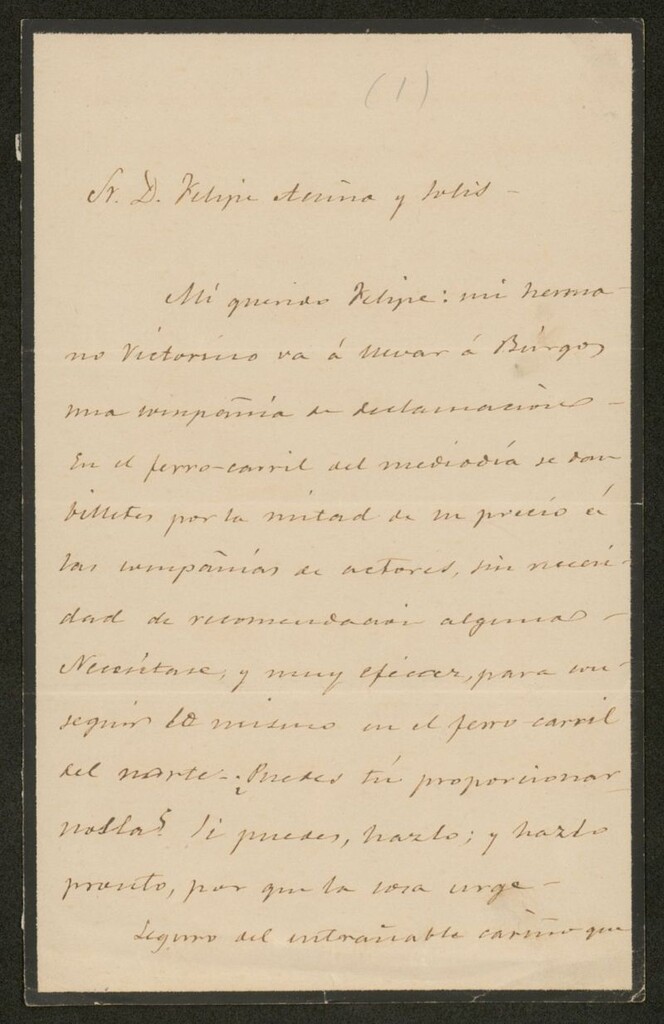 (1)
Sr. D. Felipe Acuña y Solis -
Mi querido Felipe: mi herma-
no Victorino va á llevar á Búrgos
una compañía de declamacion -
En el ferro-carril del mediodía se dan
billetes por la mitad de su precio á
las compañías de actores, sin necesi-
dad de recomendacion alguna -
Necesítase, y muy eficaz, para con-
seguir lo mismo en el ferro carril
del norte - ¿Puedes tú proporcionar-
nosla? Si puedes, hazlo; y hazlo
pronto, por que la cosa urge -
Seguro del entrañable cariño que